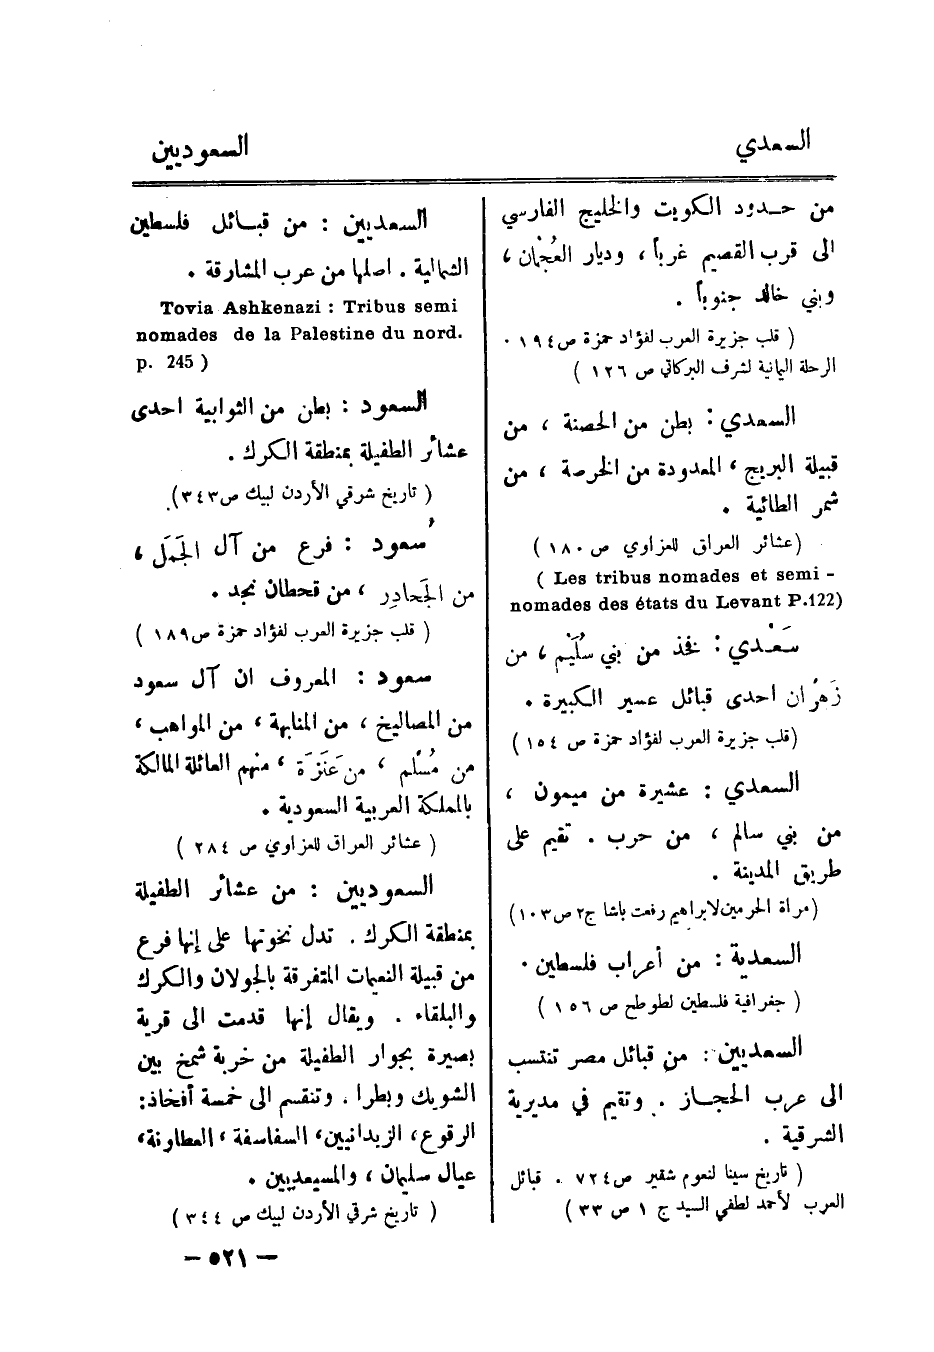 السعدي
السعوديين
من حدود الكويت والخليج الفارسي
الى قرب القصيم غرباً ، وديار العُجْمان ،
وبني خالد جنوباً .
( قلب جزيرة العرب لفؤاد حمزة ص١٩٤ .
الرحلة اليمانية لشرف البركاتي ص ١٢٦ )
السعدي : بطن من الحصنة ، من
قبيلة البريج ، المعدودة من الخرصة ، من
شمر الطائية .
(عشائر العراق للعزاوي ص ١٨٠ )
( Les tribus nomades et semi -
nomades des états du Levant P.122)
سَعْدي : فخذ من بني سُلَيْم ، من
زَهْران احدى قبائل عسير الكبيرة .
(قلب جزيرة العرب لفؤاد حمزة ص ١٥٤ )
السعدي : عشيرة من ميمون ،
من بني سالم ، من حرب . تقيم على
طريق المدينة .
(مرآة الحرمين لابراهيم رفعت باشا ج٢ ص١٠٣)
السعدية : من أعراب فلسطين .
( جغرافية فلسطين لطوطح ص ١٥٦ )
السعديين : من قبائل مصر تنتسب
الى عرب الحجاز . وتقيم في مديرية
الشرقية .
( تاريخ سينا لنعوم شقير ص٧٢٤ . قبائل
العرب لأحمد لطفي السيد ج ١ ص ٣٣ )
السعديين : من قبائل فلسطين
الشمالية . اصلها من عرب المشارقة .
Tovia Ashkenazi : Tribus semi
nomades de la Palestine du nord.
p. 245 )
السعود : بطن من الثوابية احدى
عشائر الطفيلة بمنطقة الكرك .
( تاريخ شرقي الأردن لبيك ص٣٤٣).
سُعود : فرع من آل الجَمَل ،
من الجَحادِر ، من قحطان نجد .
( قلب جزيرة العرب لفؤاد حمزة ص١٨٩ )
سعود : المعروف ان آل سعود
من المصاليخ ، من المنابهة ، من المواهب ،
من مُسْلم ، من عَنَزَة ، منهم العائلة المالكة
بالمملكة العربية السعودية .
( عشائر العراق للعزاوي ص ٢٨٤ )
السعوديين : من عشائر الطفيلة
بمنطقة الكرك . تدل نخوتها على إنها فرع
من قبيلة النعيمات المتفرقة بالجولان والكرك
والبلقاء . ويقال إنها قدمت الى قرية
بصيرة بجوار الطفيلة من خربة شمخ بين
الشوبك وبطرا . وتنقسم الى خمسة أفخاذ :
الرقوع ، الزيدانيين ، السفاسفة ، العطاونة ،
عيال سليمان ، والمسيعديين .
( تاريخ شرقي الأردن لبيك ص ٣٤٤ )
— ٥٢١ —